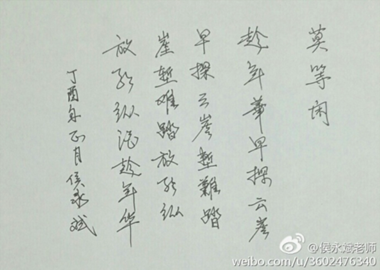 莫等闲
趁年華早探云崖
早探云崖塹難踏
崖塹难踏放歌纵
放歌纵酒趁年华
丁酉年正月侯永斌
@侯永斌老师
weibo.com/u/3602476340